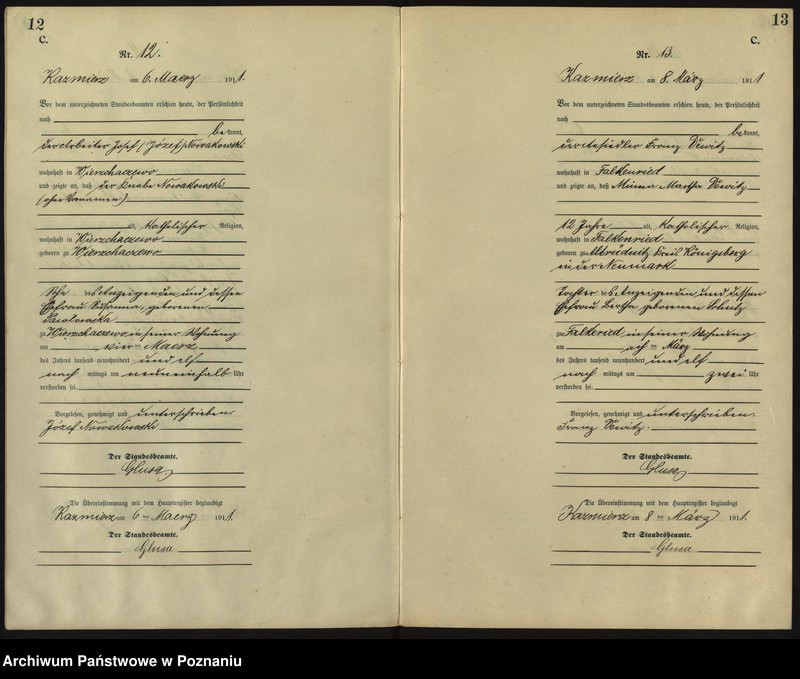 12
C.
Nr. 12.
Kazmierz am 6. Maerz 1911.
Vor dem unterzeichneten Standesbeamten erschien heute, der Persönlichkeit
nach
bekannt,
der Arbeiter Josef (Józef) Nowakowski
wohnhaft in Wierzchaczewo
und zeigte an, daß der Knabe Nowakowski
(ohne Vornamen)
alt, Katholischer Religion,
wohnhaft in Wierzchaczewo
geboren zu Wierzchaczewo
Sohn des Anzeigenden und dessen
Ehefrau Susanna geborenen
Pawlowska
zu Wierzchaczewo in seiner Wohnung
am vier ten Maerz
des Jahres tausend neunhundert und elf
nach mittags um neuneinhalb Uhr
verstorben sei.
Vorgelesen, genehmigt und unterschrieben.
Józef Nowakowski
Der Standesbeamte.
Glusa
Die Übereinstimmung mit dem Hauptregister beglaubigt
Kazmierz am 6 ten Maerz 1911.
Der Standesbeamte.
Glusa
13
C.
Nr. 13.
Kazmierz am 8. März 1911
Vor dem unterzeichneten Standesbeamten erschien heute, der Persönlichkeit
nach
bekannt,
der Ansiedler Franz Dewitz
wohnhaft in Falkenried
und zeigte an, daß Minna Martha Dewitz
12 Jahre alt, Katholischer Religion,
wohnhaft in Falkenried
geboren zu Altrüdnitz Kreis Königsberg
in der Neumark
Tochter des Anzeigenden und dessen
Ehefrau Bertha geborenen Schulz
zu Falkeried in seiner Wohnung
am ach ten März
des Jahres tausend neunhundert und elf
nach mittags um zwei Uhr
verstorben sei.
Vorgelesen, genehmigt und unterschrieben.
Franz Dewitz.
Der Standesbeamte.
Glusa
Die Übereinstimmung mit dem Hauptregister beglaubigt
Kazmierz am 8 ten März 1911.
Der Standesbeamte.
Glusa
Archiwum Państwowe w Poznaniu